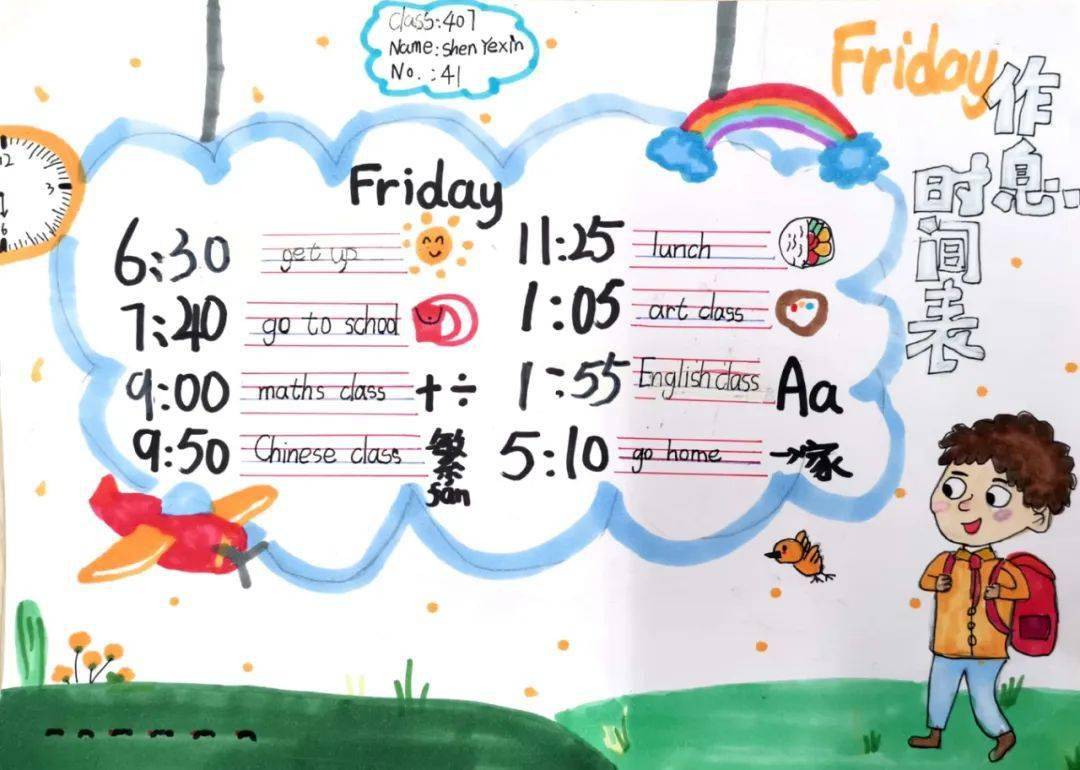 Class:407
Name:Shen Yexin
No.:41
Friday
作息
时间表
12
3
6
Friday
6:30 get up
7:40 go to school
9:00 maths class +÷
9:50 Chinese class 繁
11:25 lunch
1:05 art class
1:55 English class Aa
5:10 go home →家